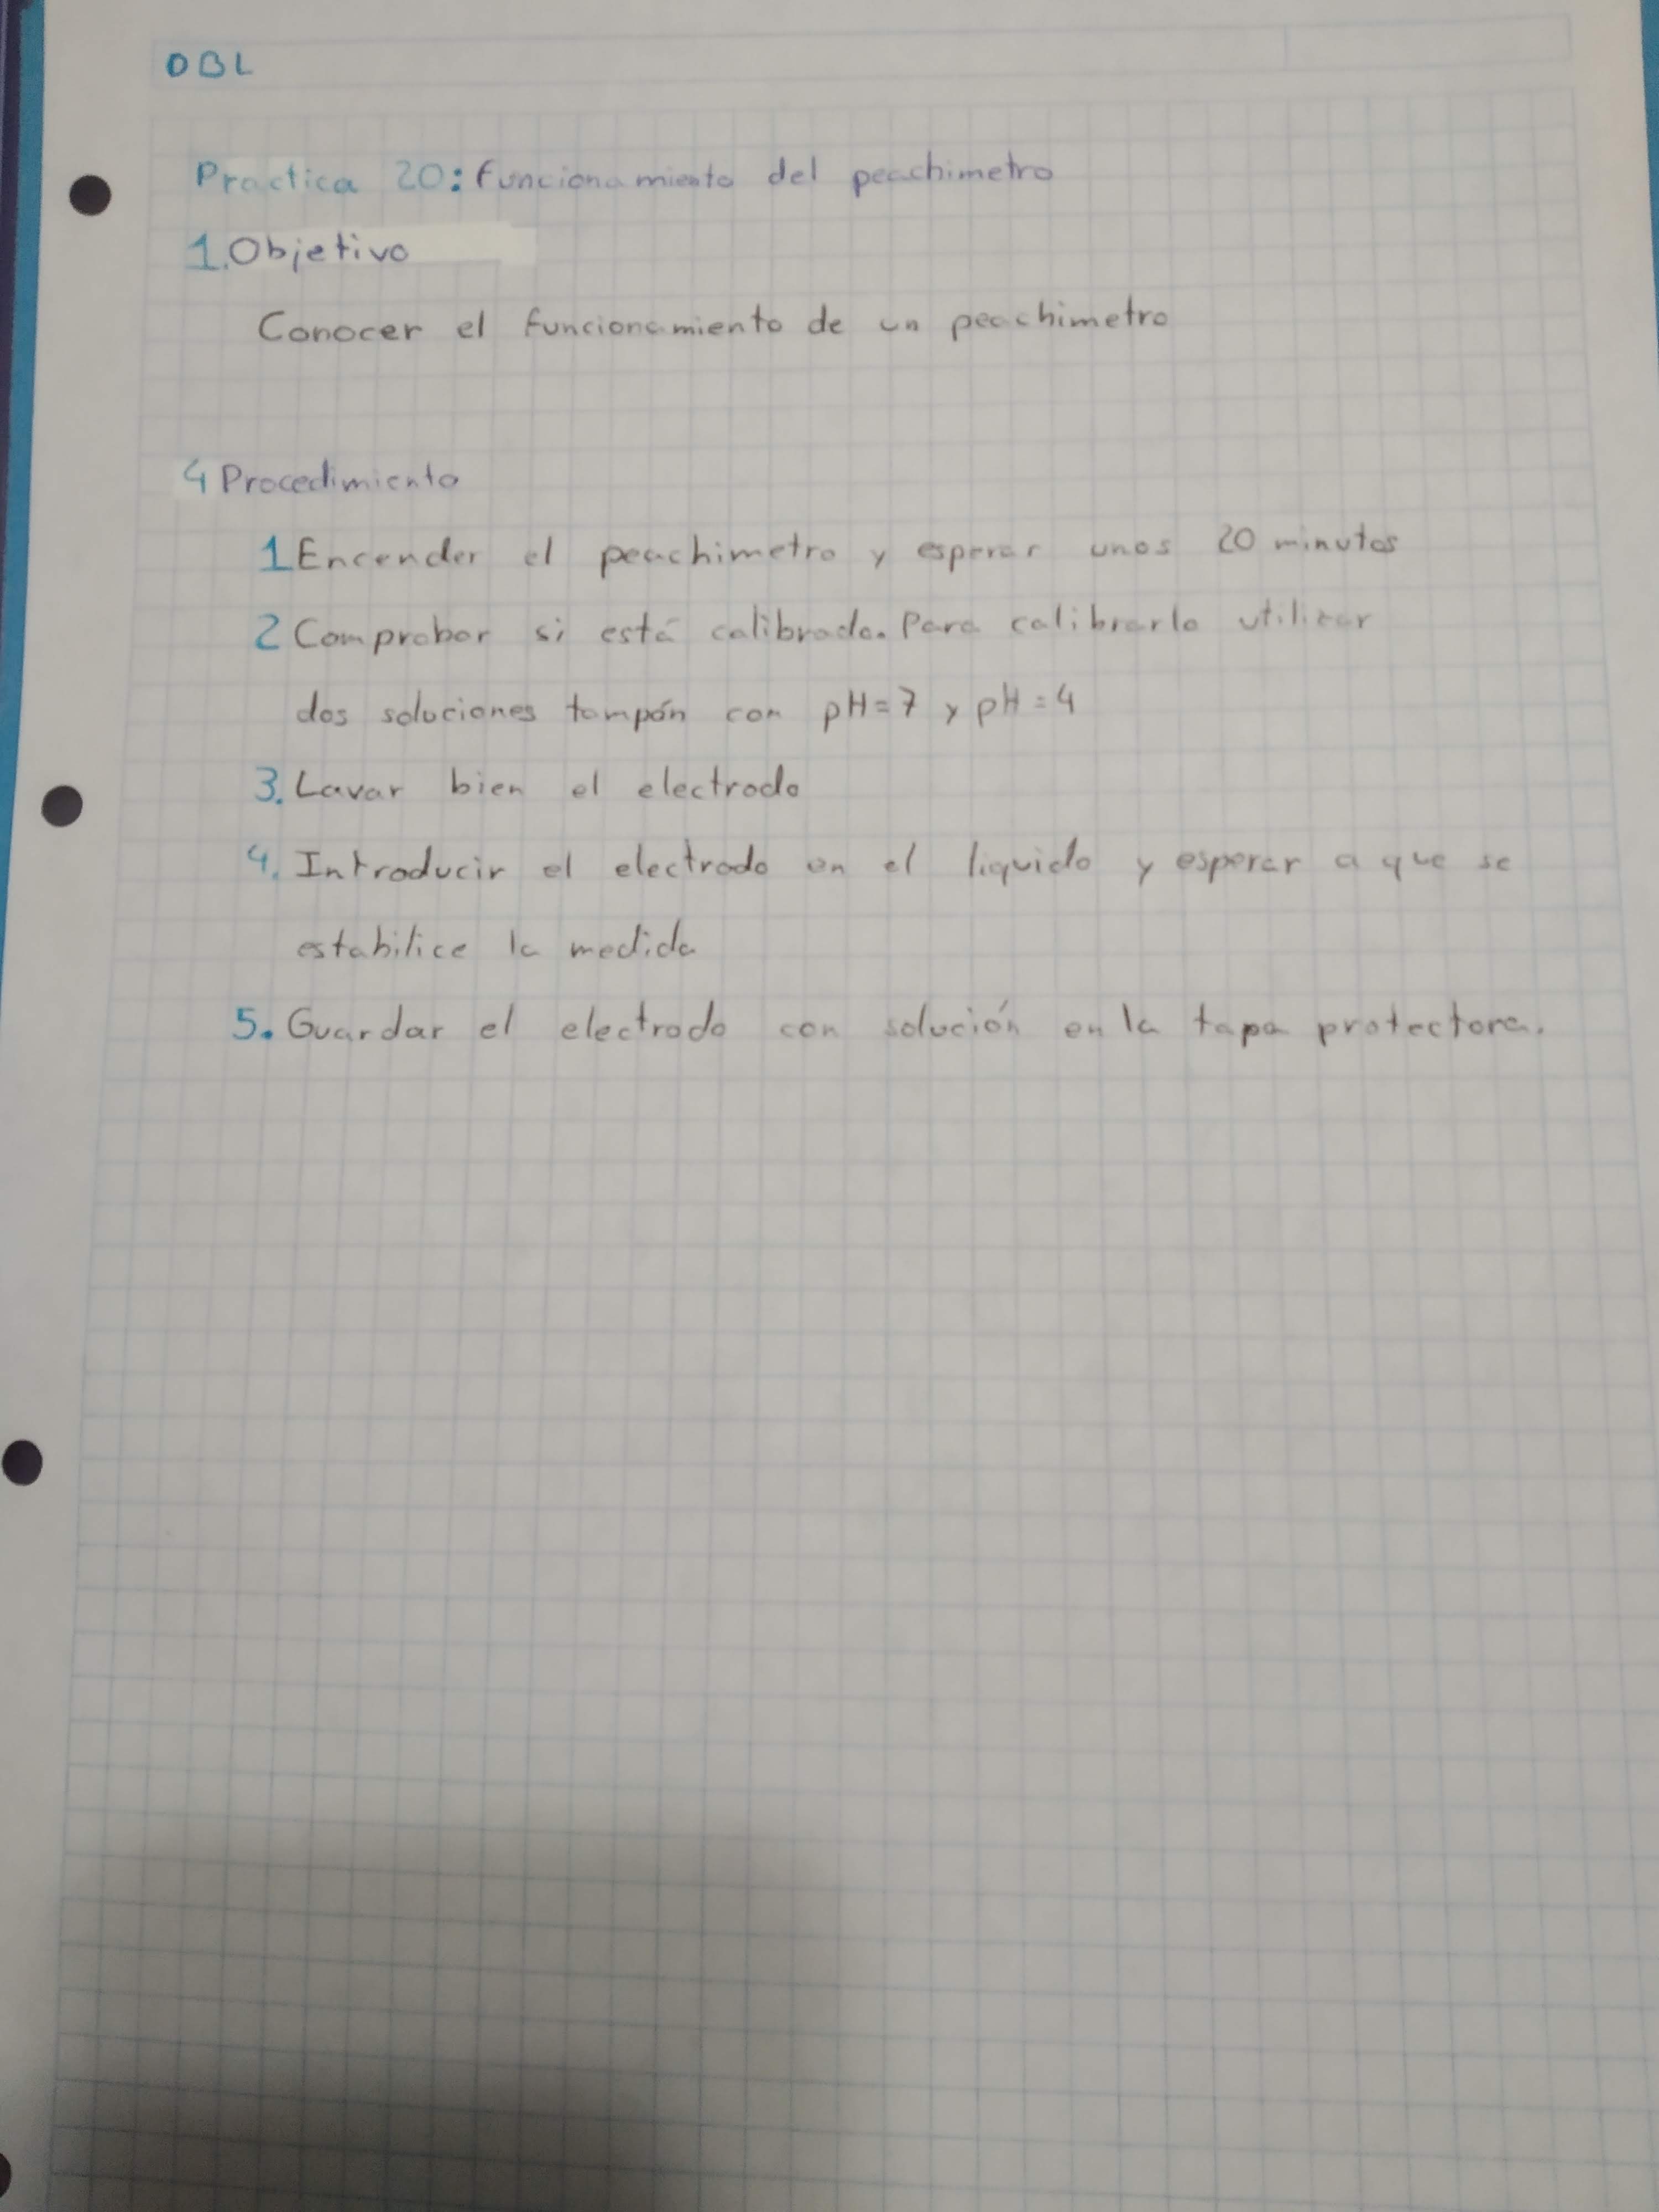 OBL
Practica 20: funcionamiento del peachimetro
1. Objetivo
Conocer el funcionamiento de un peachimetro
4 Procedimiento
1 Encender el peachimetro y esperar unos 20 minutos
2 Comprobar si está calibrado. Para calibrarlo utilizar
dos soluciones tampón con pH=7 y pH=4
3. Lavar bien el electrodo
4. Introducir el electrodo en el liquido y esperar a que se
estabilice la medida
5. Guardar el electrodo con solución en la tapa protectora.